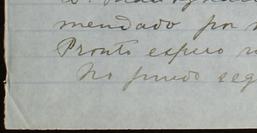 mendado por
Pronto espero
No puedo seg